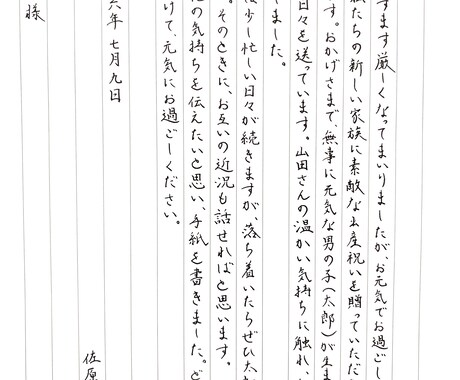 すます厳しくなってまいりましたが、お元気でお過ごし
私たちの新しい家族に素敵な出産祝いを贈っていただ
す。おかげさまで、無事に元気な男の子(太郎)が生ま
日々を送っています。山田さんの温かい気持ちに触れ、
ました。
は少し忙しい日々が続きますが、落ち着いたらぜひ太郎
。そのときに、お互いの近況も話せればと思います。
の気持ちを伝えたいと思い、手紙を書きました。ど
けて、元気にお過ごしください。
六年 七月九日
佐原
様